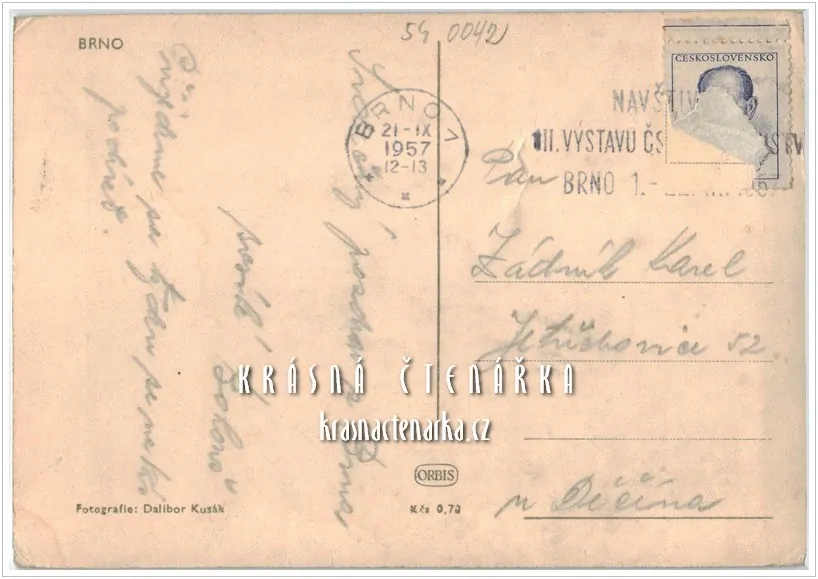 54 0042
BRNO
ČESKOSLOVENSKO
BRNO 1
21-IX
1957
12-13
NAVŠTIV
III. VÝSTAVU ČS
BRNO 1.-
Pan
Žádník Karel
Jetřichovice 52
u Děčína
Srdečný pozdrav z Brna
posílá
Příští
týden se
podívat.
KRÁSNÁ ČTENÁŘKA
krasnactenarka.cz
ORBIS
Fotografie: Dalibor Kusák
Kčs 0,70